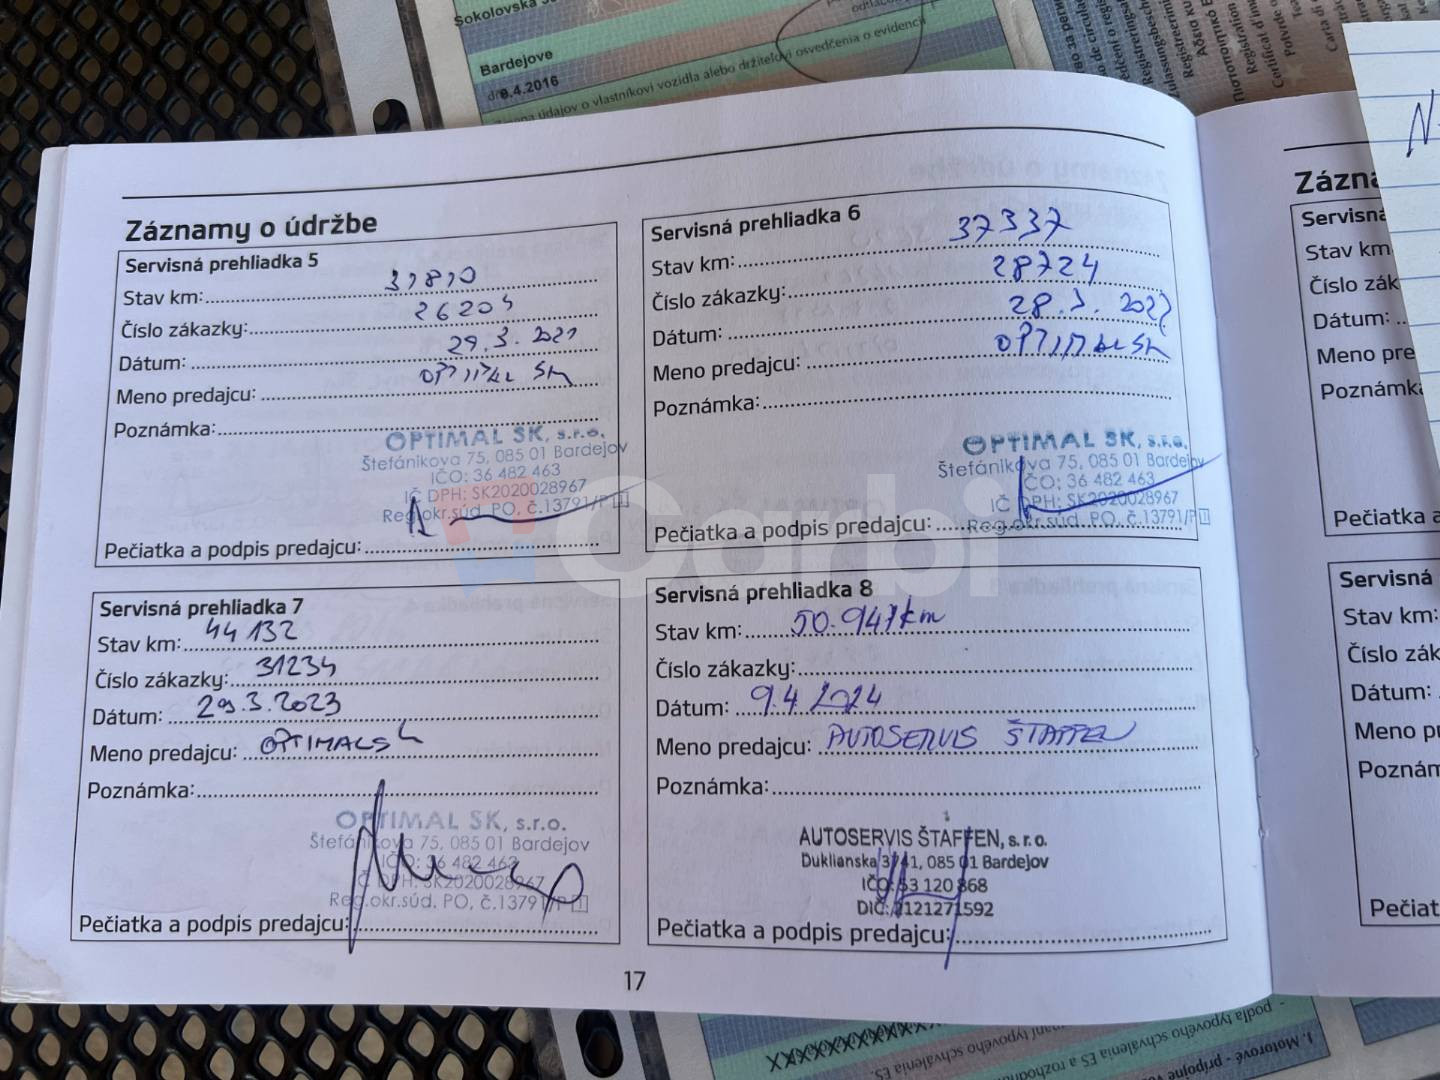 Sokolovská
Bardejove
8.4.2016
údajov o vlastníkovi vozidla alebo držiteľovi osvedčenia o evidencii
Záznamy o údržbe
Servisná prehliadka 5
Stav km: 31810
Číslo zákazky: 26204
Dátum: 29.3.2021
Meno predajcu: OPTIMAL SK
Poznámka:
OPTIMAL SK, s.r.o.
Štefánikova 75, 085 01 Bardejov
IČO: 36 482 463
IČ DPH: SK2020028967
Reg.okr.súd. PO, č.13791/P 1
Pečiatka a podpis predajcu:
Servisná prehliadka 6
Stav km: 37337
Číslo zákazky: 28724
Dátum: 28.3.2022
Meno predajcu: OPTIMAL SK
Poznámka:
OPTIMAL SK, s.r.o.
Štefánikova 75, 085 01 Bardejov
IČO: 36 482 463
IČ DPH: SK2020028967
Reg.okr.súd. PO, č.13791/P 1
Pečiatka a podpis predajcu:
Carbi
Servisná prehliadka 7
Stav km: 44132
Číslo zákazky: 31234
Dátum: 29.3.2023
Meno predajcu: OPTIMAL SK
Poznámka:
OPTIMAL SK, s.r.o.
Štefánikova 75, 085 01 Bardejov
IČO: 36 482 463
IČ DPH: SK2020028967
Reg.okr.súd. PO, č.13791/P 1
Pečiatka a podpis predajcu:
Servisná prehliadka 8
Stav km: 50.947km
Číslo zákazky:
Dátum: 9.4.2024
Meno predajcu: AUTOSERVIS ŠTAFFEN
Poznámka:
AUTOSERVIS ŠTAFFEN, s.r.o.
Duklianska 3741, 085 01 Bardejov
IČO: 53 120 868
DIČ: 2121271592
Pečiatka a podpis predajcu:
17
Servisná
Stav km
Dátum:
Poznámk
Pečiatka a
Servisná
Stav km:
Dátum:
XXXXXXXXXX